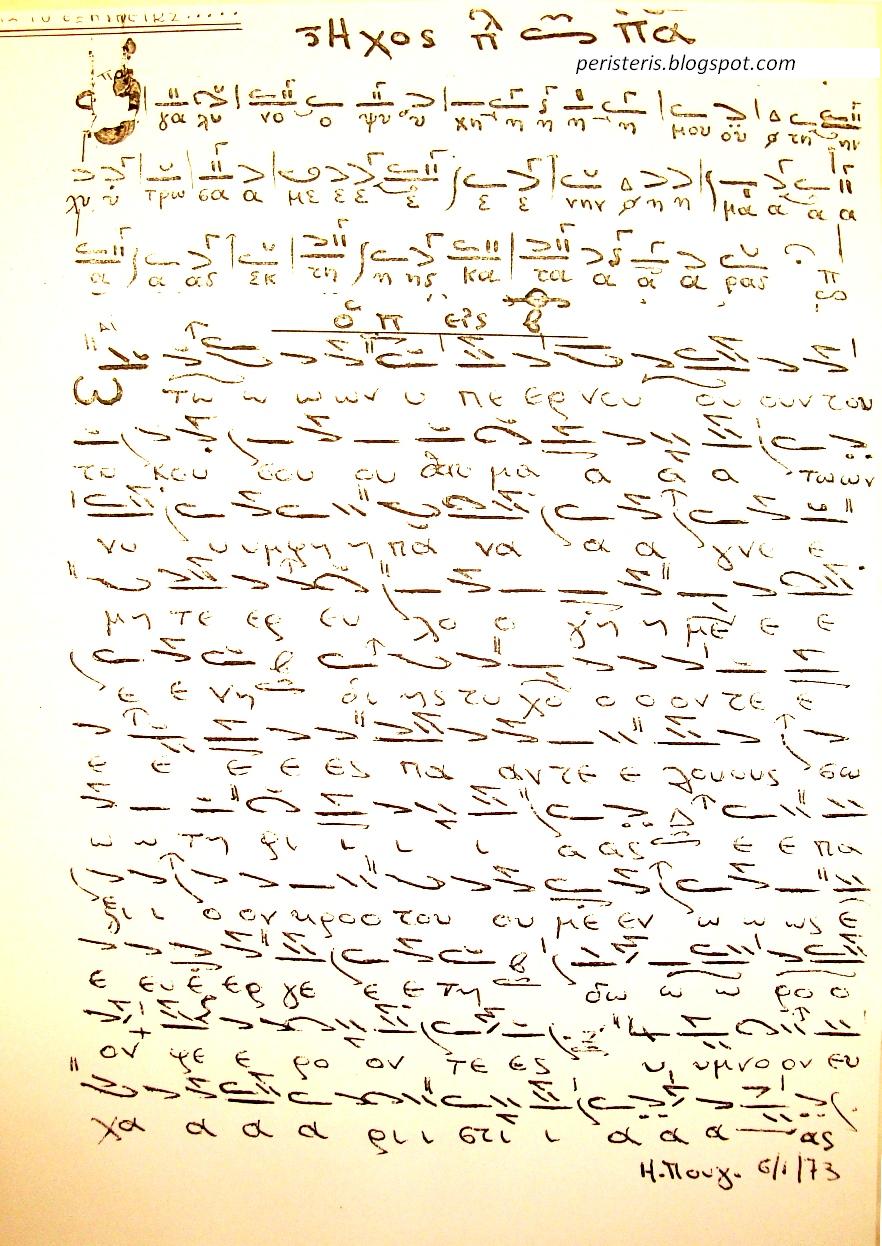 Ηχος πλ πα
peristeris.blogspot.com
γα λυ νο ο ψυ υ χη η η η η μου ου τη ην
λυ υ τρω σα α με ε ε ε ε νην η η μα α α α
α α ας εκ τη η ης κα τα α α α ρας
ο π εις β
Τω ω ω ων υ πε ερ νου ου ουν τον
το κου σου ου μα α α α τω ων
νυ υ υμφη η πα να α α γνε ε
μη τε ερ ευ λο ο γη η με ε ε
ε ε νη οι ης το χο ο ο ον τε ε
ε ε ε ε ες πα αν τε ε λουους σω
ω ω τη ρι ι ι ι α ας ε ε πα
ξι ι ο ον κροοτου ου με εν ω ω ως ε
ε ευ ε ερ γε ε ε τη δω ω ω ρο ο
ον φε ε ρο ον τε ες υ υμνοον ευ
χα α α α ρι ι στι ι α α α ας
Η.Πουγ. 6/1/73